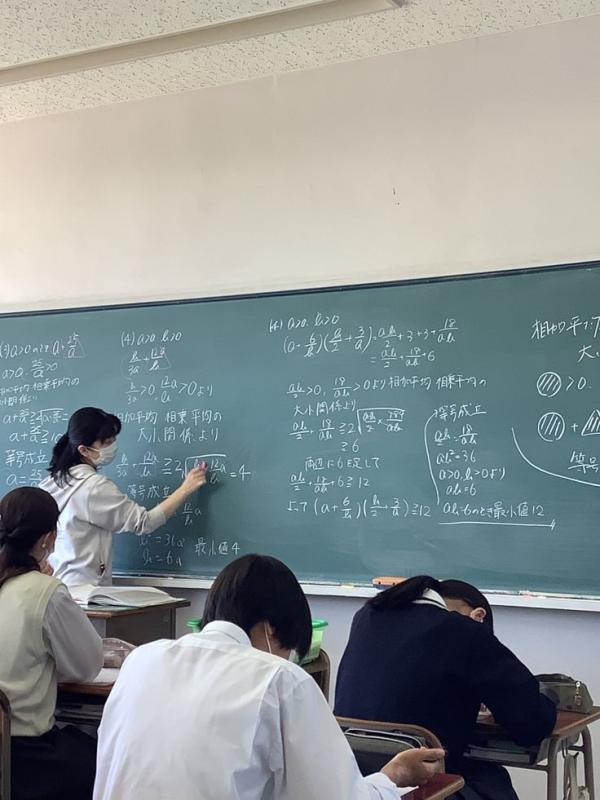 a>0のとき a+25/a
a>0 25/a>0
相加平均 相乗平均の
大小関係より
等号成立
(4) a>0 b>0
b/3a + 12a/b
b/3a>0 12a/b>0 より
相加平均 相乗平均の
大小関係より
b/3a + 12a/b ≧ 2√(b/3a 12a/b) = 4
等号成立
b² = 36a²
b = 6a 最小値4
(4) a>0 b>0
(a+6/b)(b/2+3/a) = ab/2+3+3+18/ab
= ab/2+18/ab+6
ab/2>0, 18/ab>0 より 相加平均 相乗平均の
大小関係より
ab/2+18/ab ≧ 2√(ab/2×18/ab)
≧ 6
両辺に6を足して
ab/2+18/ab+6 ≧ 12
よって (a+6/b)(b/2+3/a) ≧ 12
等号成立
ab/2 = 18/ab
a>0, b>0 より
ab = 6
ab=6のとき最小値12
相加平
大
>0.
+
等号